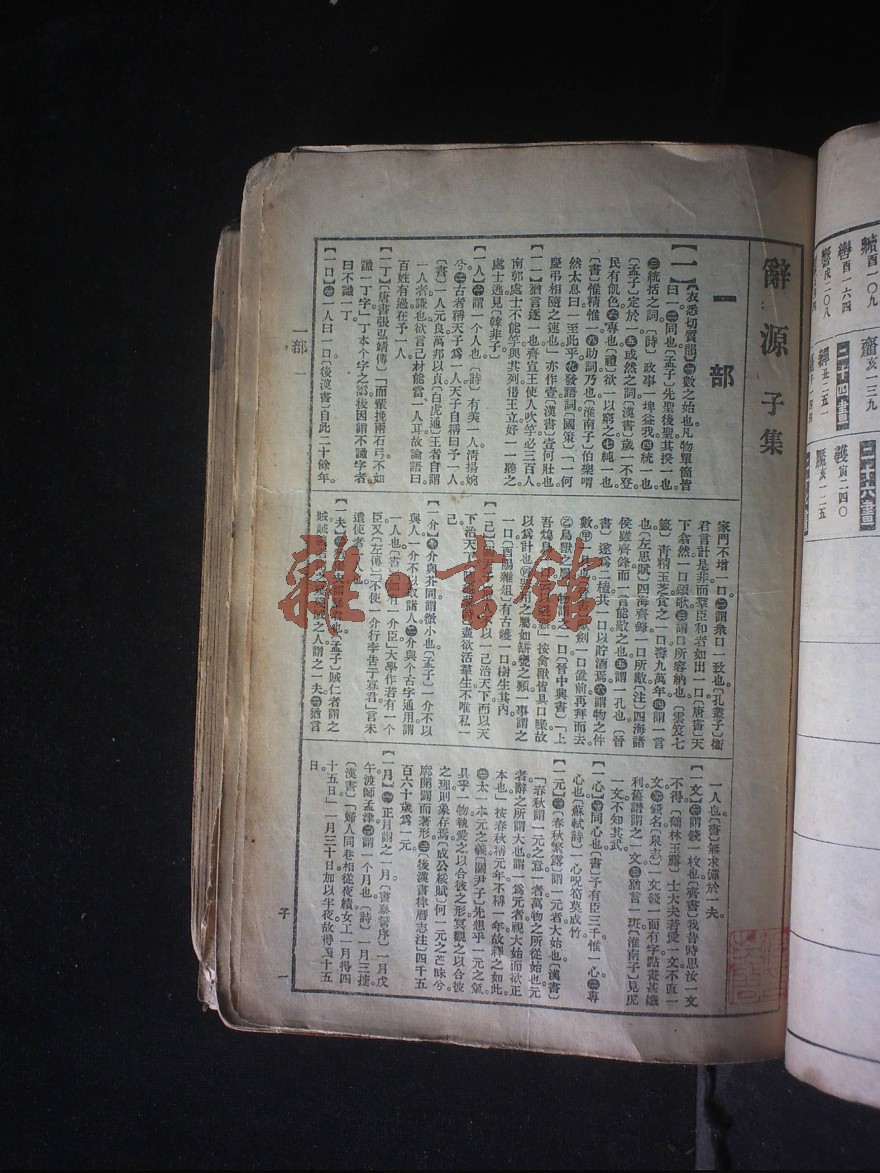 辭源 子集
一部
【一】〔衣悉切質韻〕㊀數之始也凡物單箇皆
曰一㊁同也〔孟子〕先聖後聖其揆一也
㊂統括之詞〔詩〕政事一埤益我㊃統一也
〔孟子〕定於一㊄或然之詞〔漢書〕歲一不登
民有飢色㊅專也〔禮〕欲一以窮之㊆純一也
〔書〕惟精惟一㊇助詞乃也〔淮南子〕伯樂喟
然太息曰一至此乎㊈發語詞〔國策〕「一何
慶弔相隨之速也」亦作壹〔漢書〕壹何壯也
【一一】猶言逐一也齊宣王使人吹竽必三百人
南郭處士不能竽與其列湣王立好一一聽之
處士逃見〔韓非子〕
【一人】㊀謂一個人也〔詩〕有美一人清揚婉
兮㊁古者稱天子爲一人天子自稱曰予一人
〔書〕一人元良萬邦以貞〔白虎通〕王者自謂
一人者謙也欲言己材能當一人耳故論語曰
百姓有過在予一人
【一丁】〔唐書張弘靖傳〕「而輩挽兩石弓不如
識一丁字」丁本个字之譌後因謂不識字者
曰不識一丁
【一口】㊀一人曰一口〔後漢書〕自此二十餘年
家門不增一口㊁謂衆口一致也〔孔叢子〕衞
君言計是非而羣臣和者如出一口〔唐書〕天
下翕然一口頌歌㊂謂口所容納也〔雲笈七
籤〕青精玉芝食之一口壽九萬年㊃謂一言
也〔左思賦〕四海齊鋒一口所敵〔注〕四海諸
侯雖齊鋒而一言能敵之也㊄謂一孔也〔晉
書〕遂爲二榼共一口以貯酒焉㊅謂物之件
數
劍一口置前再拜而去
鳥獸之
一口〔晉中興書〕「上
按禽獸皆具口喙故
以爲計也
之屬如缾甕之類一事謂之
一口〔酉陽雜俎〕有古鑊一口樹生其內
【一己】
以一己治天下而以天
下治天下
盡欲活羣生不唯私一
己
【一介】㊀介與芥同謂微小也〔孟子〕一介不以
與人一介不以取諸人㊁介與个古字通用謂
一人也〔書〕如有一介臣」大學作若有一个
臣又〔左傳〕「不使一介行李告于寡君」言未
遣使者一人也
【一夫】
〔孟子〕賊仁者謂之
賊賊
之人謂之一夫㊁猶言
一人也〔書〕無求備於一夫
【一文】㊀謂錢一枚也〔齊書〕我昔時思汝一文
不得〔鶴林玉露〕士大夫若愛一文不直一
文㊁錢名〔泉志〕一文錢一面有字點畫甚纖
利舊譜謂之一文㊂猶言一斑〔淮南子〕見虎
一文不知其武
【一心】㊀同心也〔書〕予有臣三千惟一心㊁專
心也〔蘇軾詩〕一心呪筍莫成竹
【一元】㊀〔春秋繁露〕謂一元者大始也〔漢書〕
「春秋謂一元之意一者萬物之所從始也元
者辭之所謂大也謂一爲元者視大始而欲正
本也」按春秋稱元年不稱一年故釋之如此
㊁太一本元之㮣〔關尹子〕先想乎一元之氣
具乎一物執愛之以合彼之形冥觀之以合彼
之理則象存焉〔成公綏賦〕何一元之芒昧兮
廓開闢而著形㊂〔後漢書律曆志注〕四千五
百六十歲爲一元
【一月】㊀正月謂之一月〔書泰誓序〕一月戊
午渡師孟津㊁謂一個月也〔詩〕一月三捷
〔漢書〕「婦人同巷相從夜績女工一月得四
十五日」一月三十日加以半夜故得四十五
日
一部
一
子
一
雜·書館
酉一〇九
酉一六四
戌二〇八
齋亥一三九
二十四畫
丑二五一
寅二四〇
亥一二五
二十六畫